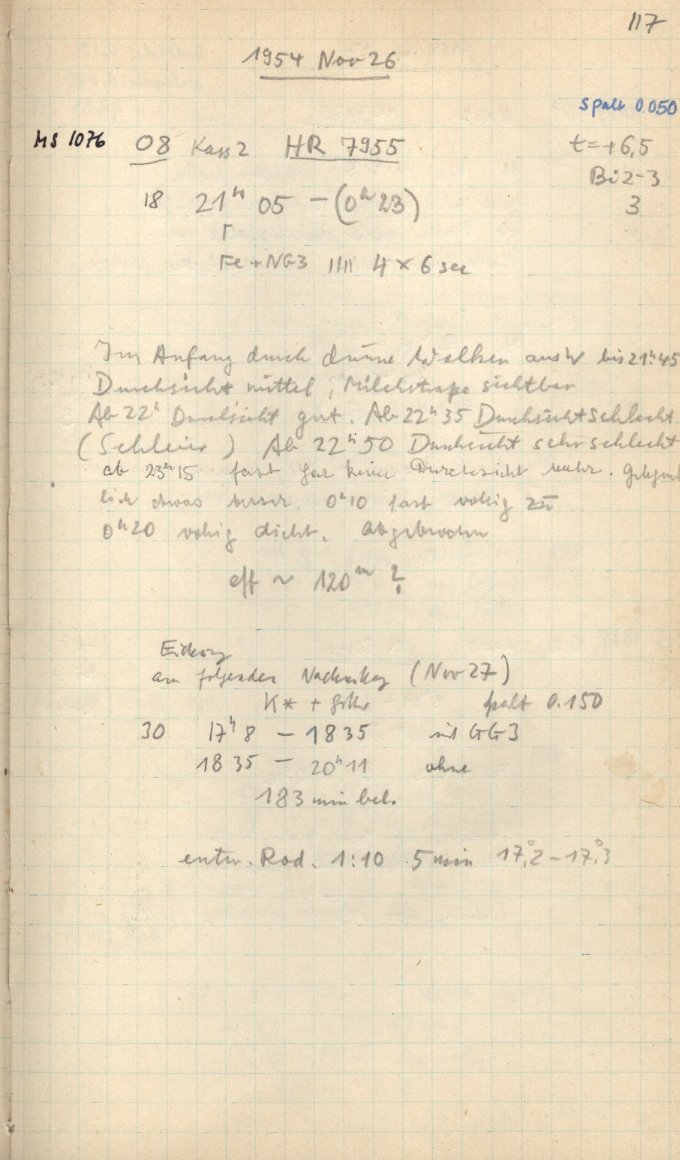 117
1954 Nov 26
Spalt 0.050
MS 1076 08 Kass 2 HR 7955 t=+6,5
Bi 2-3
18 21ʰ 05 — (0ʰ 23) 3
Γ
Fe + NG3 IIII 4 × 6 sec
Im Anfang durch dünne Wolken aus W bis 21ʰ45
Durchsicht mittel, Milchstraße sichtbar
Ab 22ʰ Durchsicht gut. Ab 22ʰ35 Durchsicht schlecht
(Schleier) Ab 22ʰ50 Durchsicht sehr schlecht
ab 23ʰ15 fast gar keine Durchsicht mehr. Gelegent
lich etwas besser. 0ʰ10 fast völlig zu
0ʰ20 völlig dicht. abgebrochen
eff ~ 120ᵐ ?
am folgenden Nachmittag (Nov 27)
K* + Spalt 0.150
30 17ʰ8 — 1835 mit GG3
1835 — 20ʰ11 ohne
183 min bel.
entw. Rod. 1:10 5 min 17°,2 – 17°,3